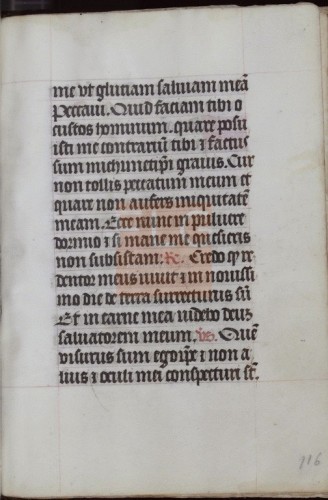 me vt glutiam saliuam meā
Peccaui. Quid faciam tibi o
custos hominum. quare posu
isti me contrariū tibi ⁊ factus
sum michimetip̄i grauis. Cur
non tollis peccatum meum et
quare non aufers iniquitatē
meam. Ecce nunc in puluere
dormio ⁊ si mane me quesieris
non subsistam: R. Credo qꝫ re
demtor meus viuit ⁊ in nouissi
mo die de terra surrecturus sū
Et in carne mea videbo deuȝ
saluatorem meum. vs. Quē
visurus sum ego ip̄e ⁊ non a
lius ⁊ oculi mei conspecturi st̄.
116